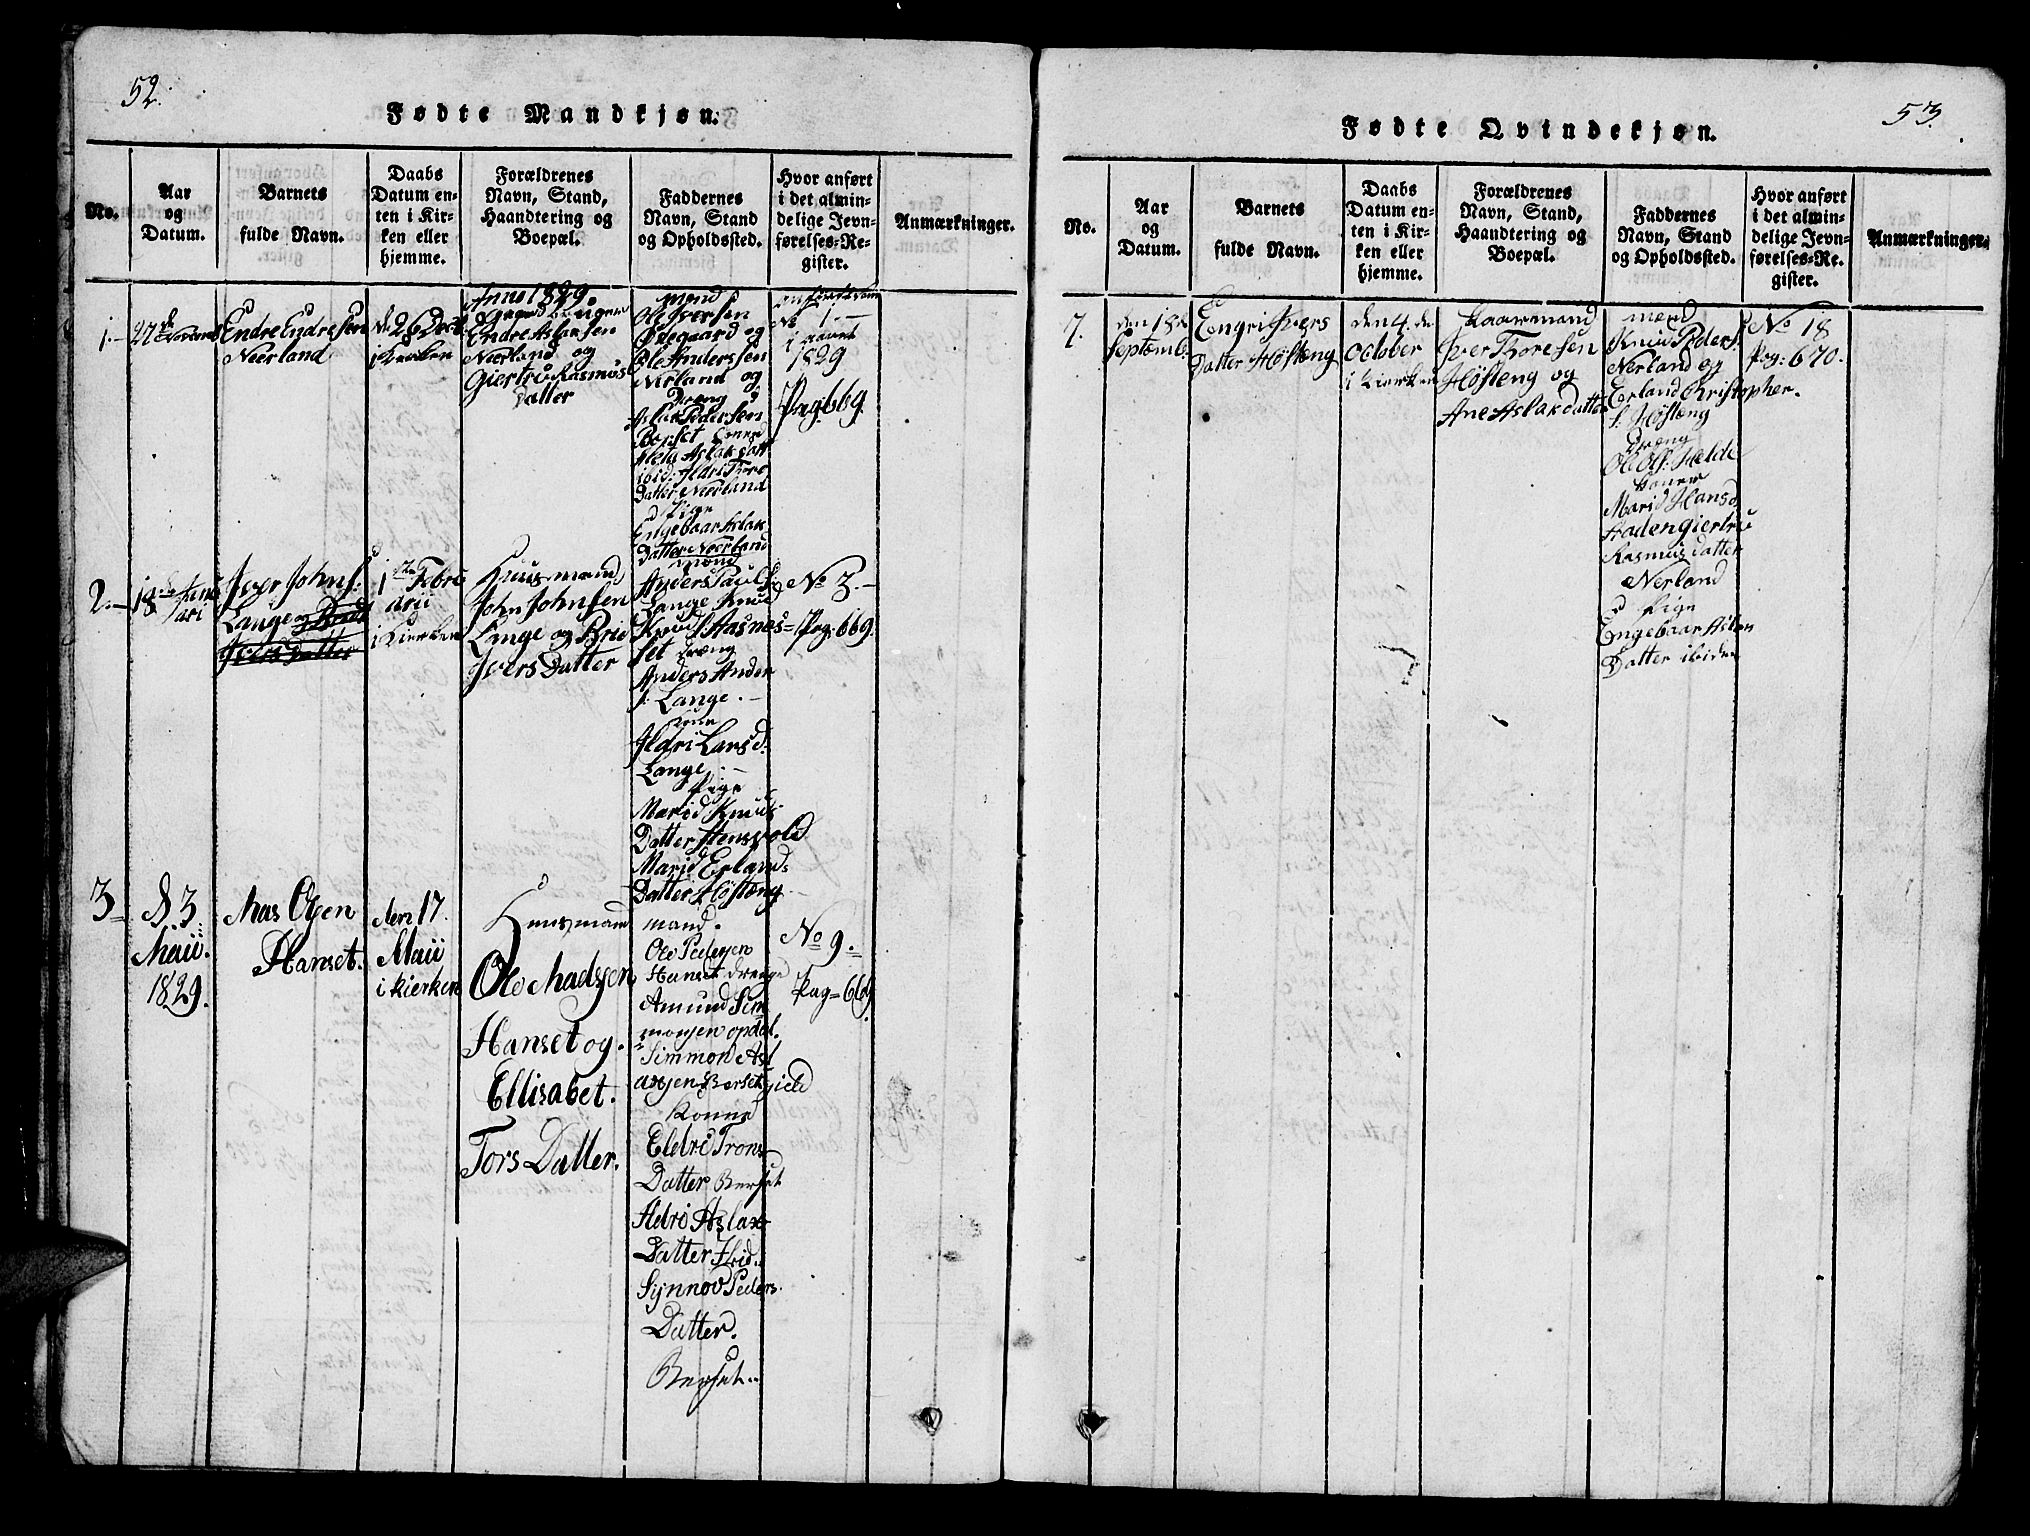 52.
Fødte Mandkjøn.
No.
Aar
og
Datum.
Barnets
fulde Navn.
Daabs
Datum en-
ten i Kir-
ken eller
hjemme.
Forældrenes
Navn, Stand,
Haandtering og
Boepæl.
Faddernes
Navn, Stand
og Opholdssted.
Hvor anført
i det almin-
delige Jevn-
førelses-Re-
gister.
Anmærkninger.
1.
27de Novemb
Endre Endresen
Nerland
d. 26 Decb
i Kirken
Anno 1829.
Endre Aslaksen
Nerland og
Giertru Rasmus
Datter
mend
Ole Iversen
Ødegaard og
Ole Anderssen
Nerland og
Dreng
Aslak Pedersen
Berset
Aslaksdatt
ibid: Ildri Thore
Datter Nerland
Pige
Engebaar Aslak
Datter Nerland
No 1.
i Aaret
1829
Pag: 669.
2.
18
Iver Johns.
Lange og Brid
Ivers Datter
1ste Febru
arii
i Kierken
Huusmand
John Johnsen
Lange og Brid
Ivers Datter
mend
Anders Pauls
Lange Knud
Knuds. Hasnes=
set Dræng
Anders Ander
s. Lange.
Kone
Ildri Larsd.
Lange.
Pige
Marid Knuds
Datter Stensvold
Marid Erlands
Datter Høsteng
No 3.
Pag: 669.
3
d 3.
Maii.
1829.
Mas Olsen
Hanset.
den 17.
Maii
i kierken
Huusmand
Ole Madsen
Hanset og.
Ellisabet.
Tors Datter.
mand.
Ole Pedersen
Hanset drenge
Amund Sim
monsen opdal.
Simmon Asl
axsen Berset gield
Konne
Eldri Trons
Datter Berset
Ildri Aslax
Datter Ibid.
Synnov Peders.
Datter.
Berset.
No 9.
Pag= 669.
53.
Fødte Qvindekjøn.
No.
Aar
og
Datum.
Barnets
fulde Navn.
Daabs
Datum en-
ten i Kir-
ken eller
hjemme.
Forældrenes
Navn, Stand,
Haandtering og
Boepæl.
Faddernes
Navn, Stand
og Opholdssted.
Hvor anført
i det almin-
delige Jevn-
førelses-Re-
gister.
Anmærkninger.
7.
den 18de
Septemb.
Engri Ivers
Datter Høsteng
den 4. de
October
i Kierken
Gaarmand
Iver Thoresen
Høsteng og
Ane Aslakdatter
mend
Knud Peders.
Nerland og
Erland Kristopher.
s. Høsteng
Dræng
Ole Ols. Helde
Koner
Marid Hansd.
Staden Giertru
Rasmus datter
Nerland
Pige
Engebaar Aslak
Datter ibidem
No 18
Pag: 670.